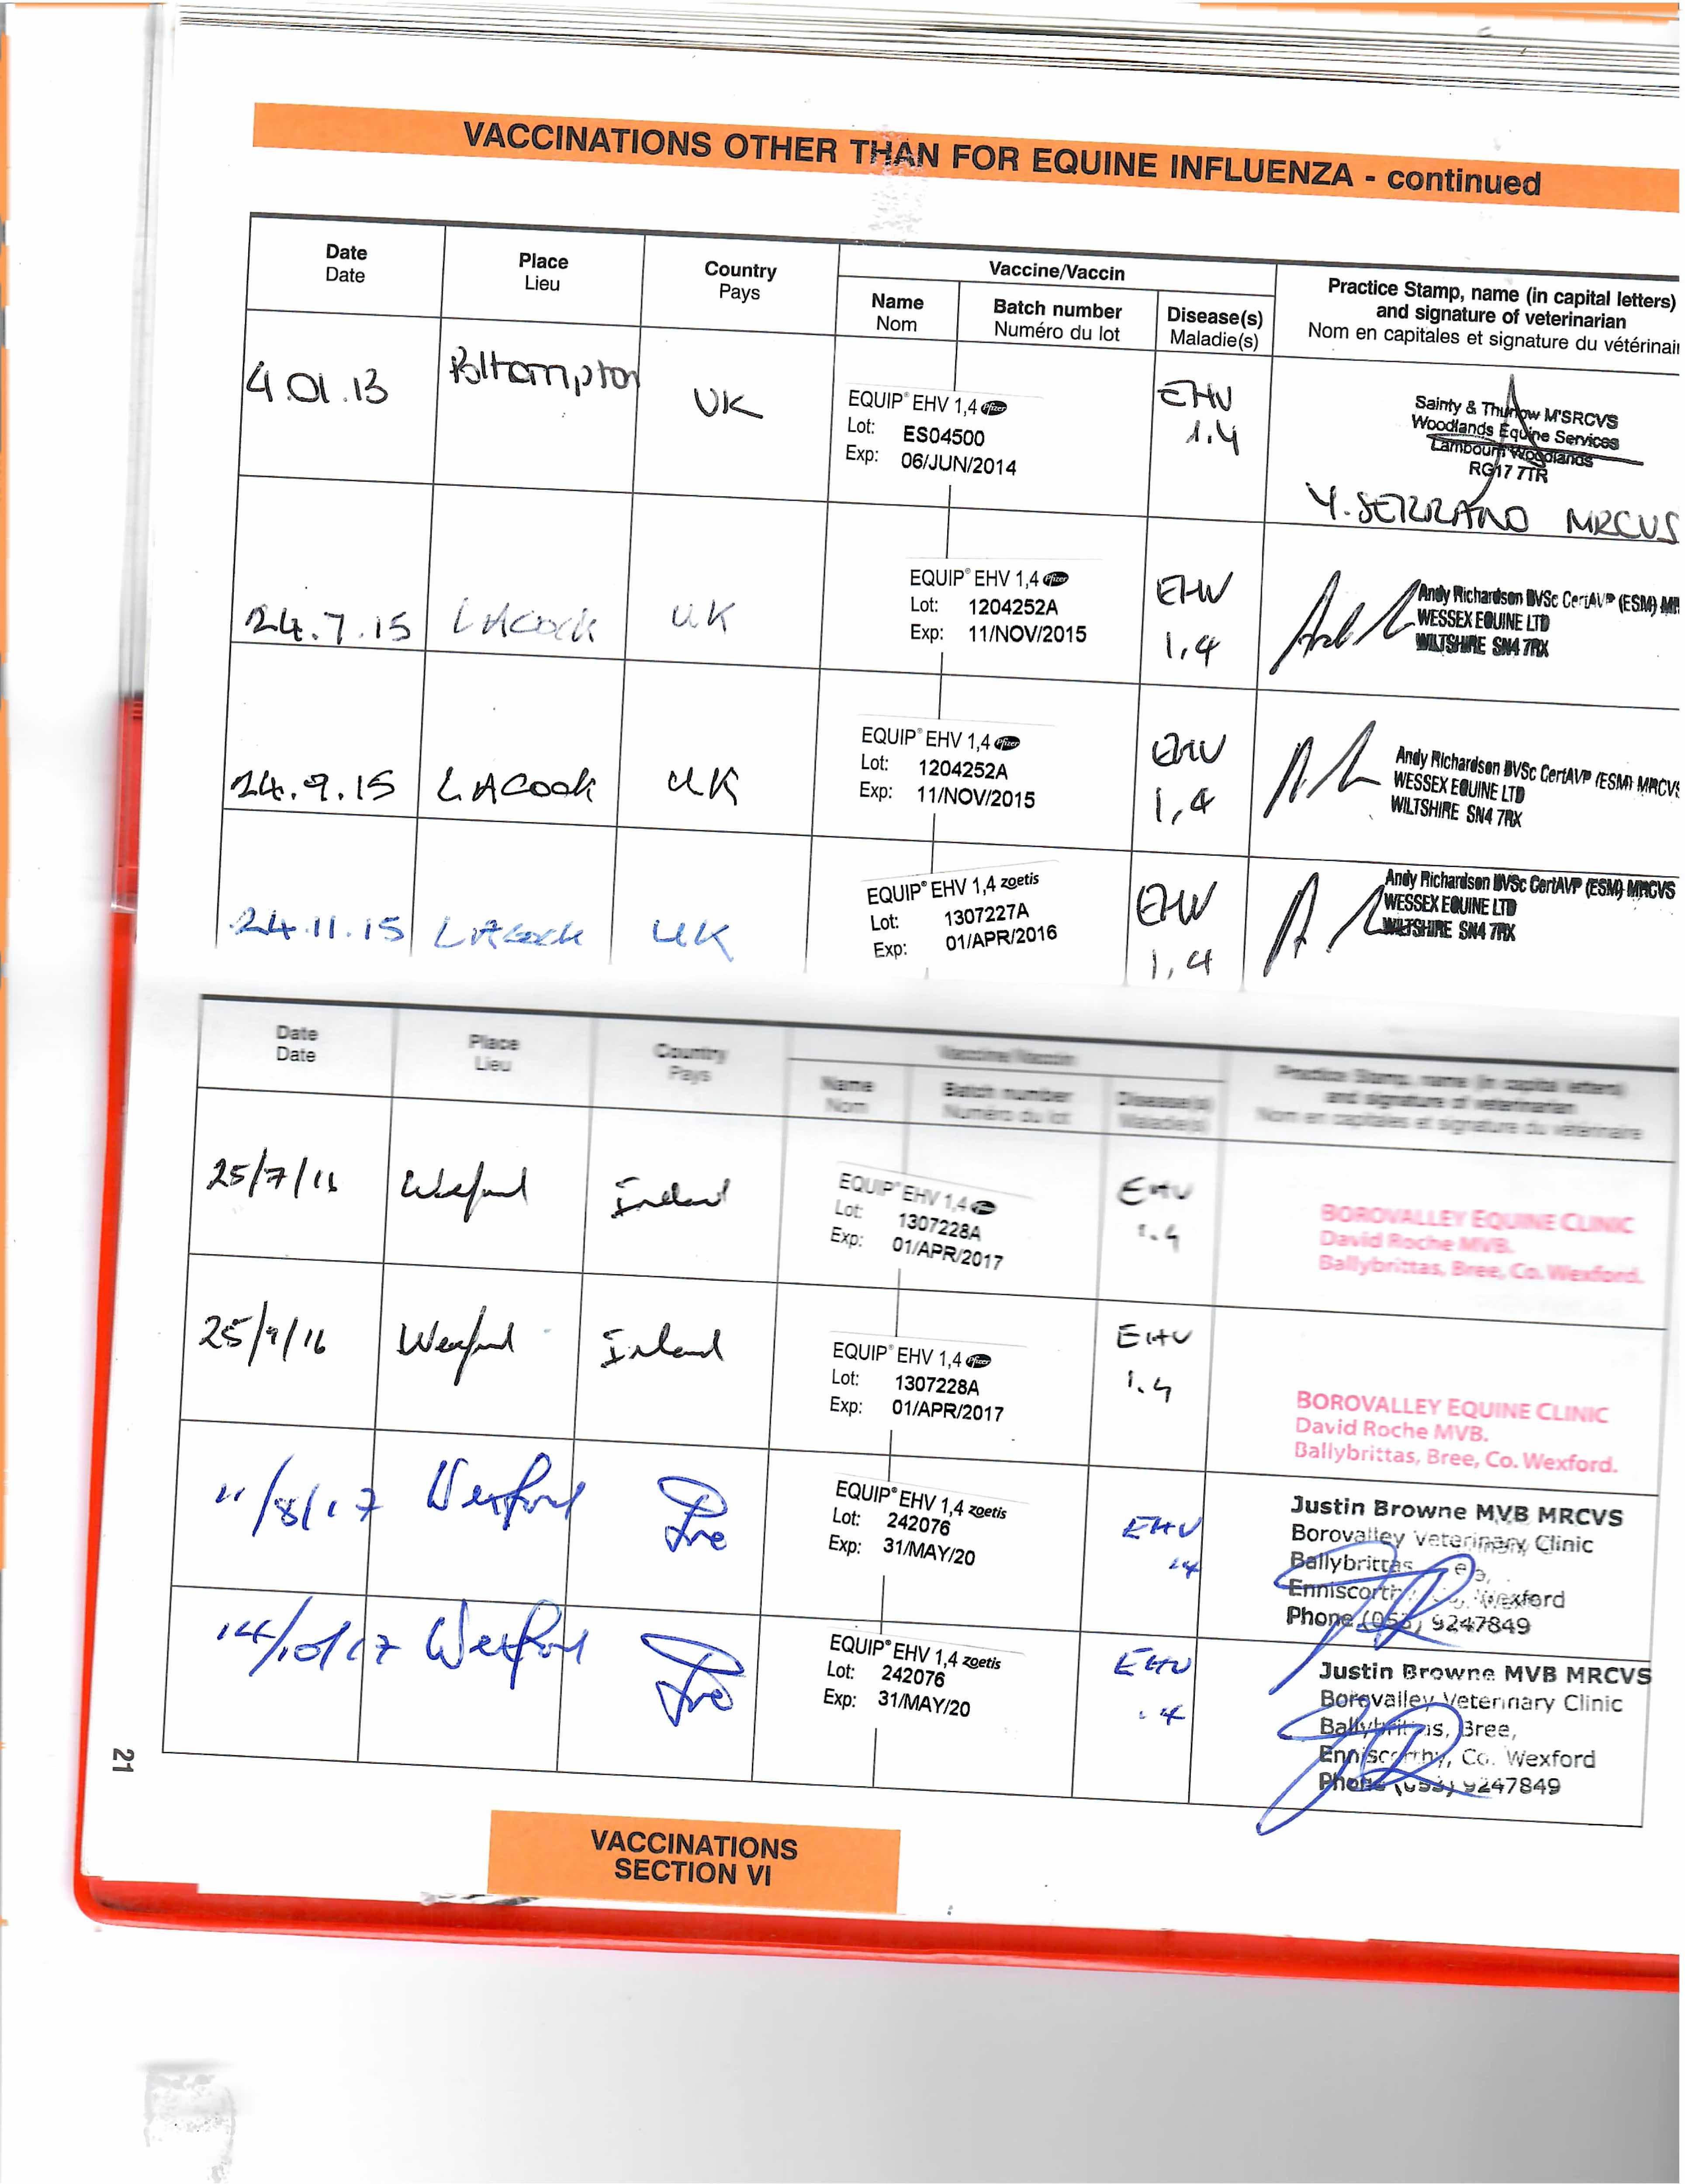 VACCINATIONS OTHER THAN FOR EQUINE INFLUENZA - continued
Date
Date
Place
Lieu
Country
Pays
Vaccine/Vaccin
Name
Nom
Batch number
Numéro du lot
Disease(s)
Maladie(s)
Practice Stamp, name (in capital letters)
and signature of veterinarian
Nom en capitales et signature du vétérinair
4.01.13
UK
EQUIP® EHV 1,4 Pfizer
Lot: ES04500
Exp: 06/JUN/2014
EHV
1.4
Sainty & Thurlow M'SRCVS
Woodlands Equine Services
Lambourn Woodlands
RG17 7TR
Y. SERRANO MRCVS
24.7.15
LACOCK
UK
EQUIP® EHV 1,4 Pfizer
Lot: 1204252A
Exp: 11/NOV/2015
EHV
1,4
Andy Richardson BVSc CertAVP (ESM) MR
WESSEX EQUINE LTD
WILTSHIRE SN4 7RX
24.9.15
LACOCK
UK
EQUIP® EHV 1,4 Pfizer
Lot: 1204252A
Exp: 11/NOV/2015
EHV
1,4
Andy Richardson BVSc CertAVP (ESM) MRCVS
WESSEX EQUINE LTD
WILTSHIRE SN4 7RX
24.11.15
LACOCK
UK
EQUIP® EHV 1,4 zoetis
Lot: 1307227A
Exp: 01/APR/2016
EHV
1,4
Andy Richardson BVSc CertAVP (ESM) MRCVS
WESSEX EQUINE LTD
WILTSHIRE SN4 7RX
Date
Date
Place
Lieu
Country
Pays
Vaccine/Vaccin
Name
Nom
Batch number
Numéro du lot
Disease(s)
Maladie(s)
Practice Stamp, name (in capital letters)
and signature of veterinarian
Nom en capitales et signature du vétérinaire
25/7/16
Wexford
Ireland
EQUIP® EHV 1,4
Lot: 1307228A
Exp: 01/APR/2017
EHV
1.4
BOROVALLEY EQUINE CLINIC
David Roche MVB.
Ballybrittas, Bree, Co. Wexford.
25/9/16
Wexford
Ireland
EQUIP® EHV 1,4 Pfizer
Lot: 1307228A
Exp: 01/APR/2017
EHV
1.4
BOROVALLEY EQUINE CLINIC
David Roche MVB.
Ballybrittas, Bree, Co. Wexford.
11/8/17
Wexford
Ire
EQUIP® EHV 1,4 zoetis
Lot: 242076
Exp: 31/MAY/20
EHV
14
Justin Browne MVB MRCVS
Borovalley Veterinary Clinic
Ballybrittas
Enniscorthy, Co. Wexford
Phone (053) 9247849
14/10/17
Wexford
Ire
EQUIP® EHV 1,4 zoetis
Lot: 242076
Exp: 31/MAY/20
EHV
.4
Justin Browne MVB MRCVS
Borovalley Veterinary Clinic
Ballybrittas, Bree,
Enniscorthy, Co. Wexford
Phone (053) 9247849
21
VACCINATIONS
SECTION VI